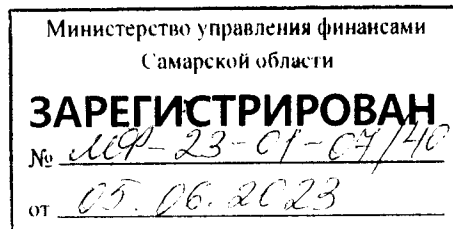 Министерство управления финансами
Самарской области
ЗАРЕГИСТРИРОВАН
№ МФ-23-01-07/40
от 05.06.2023